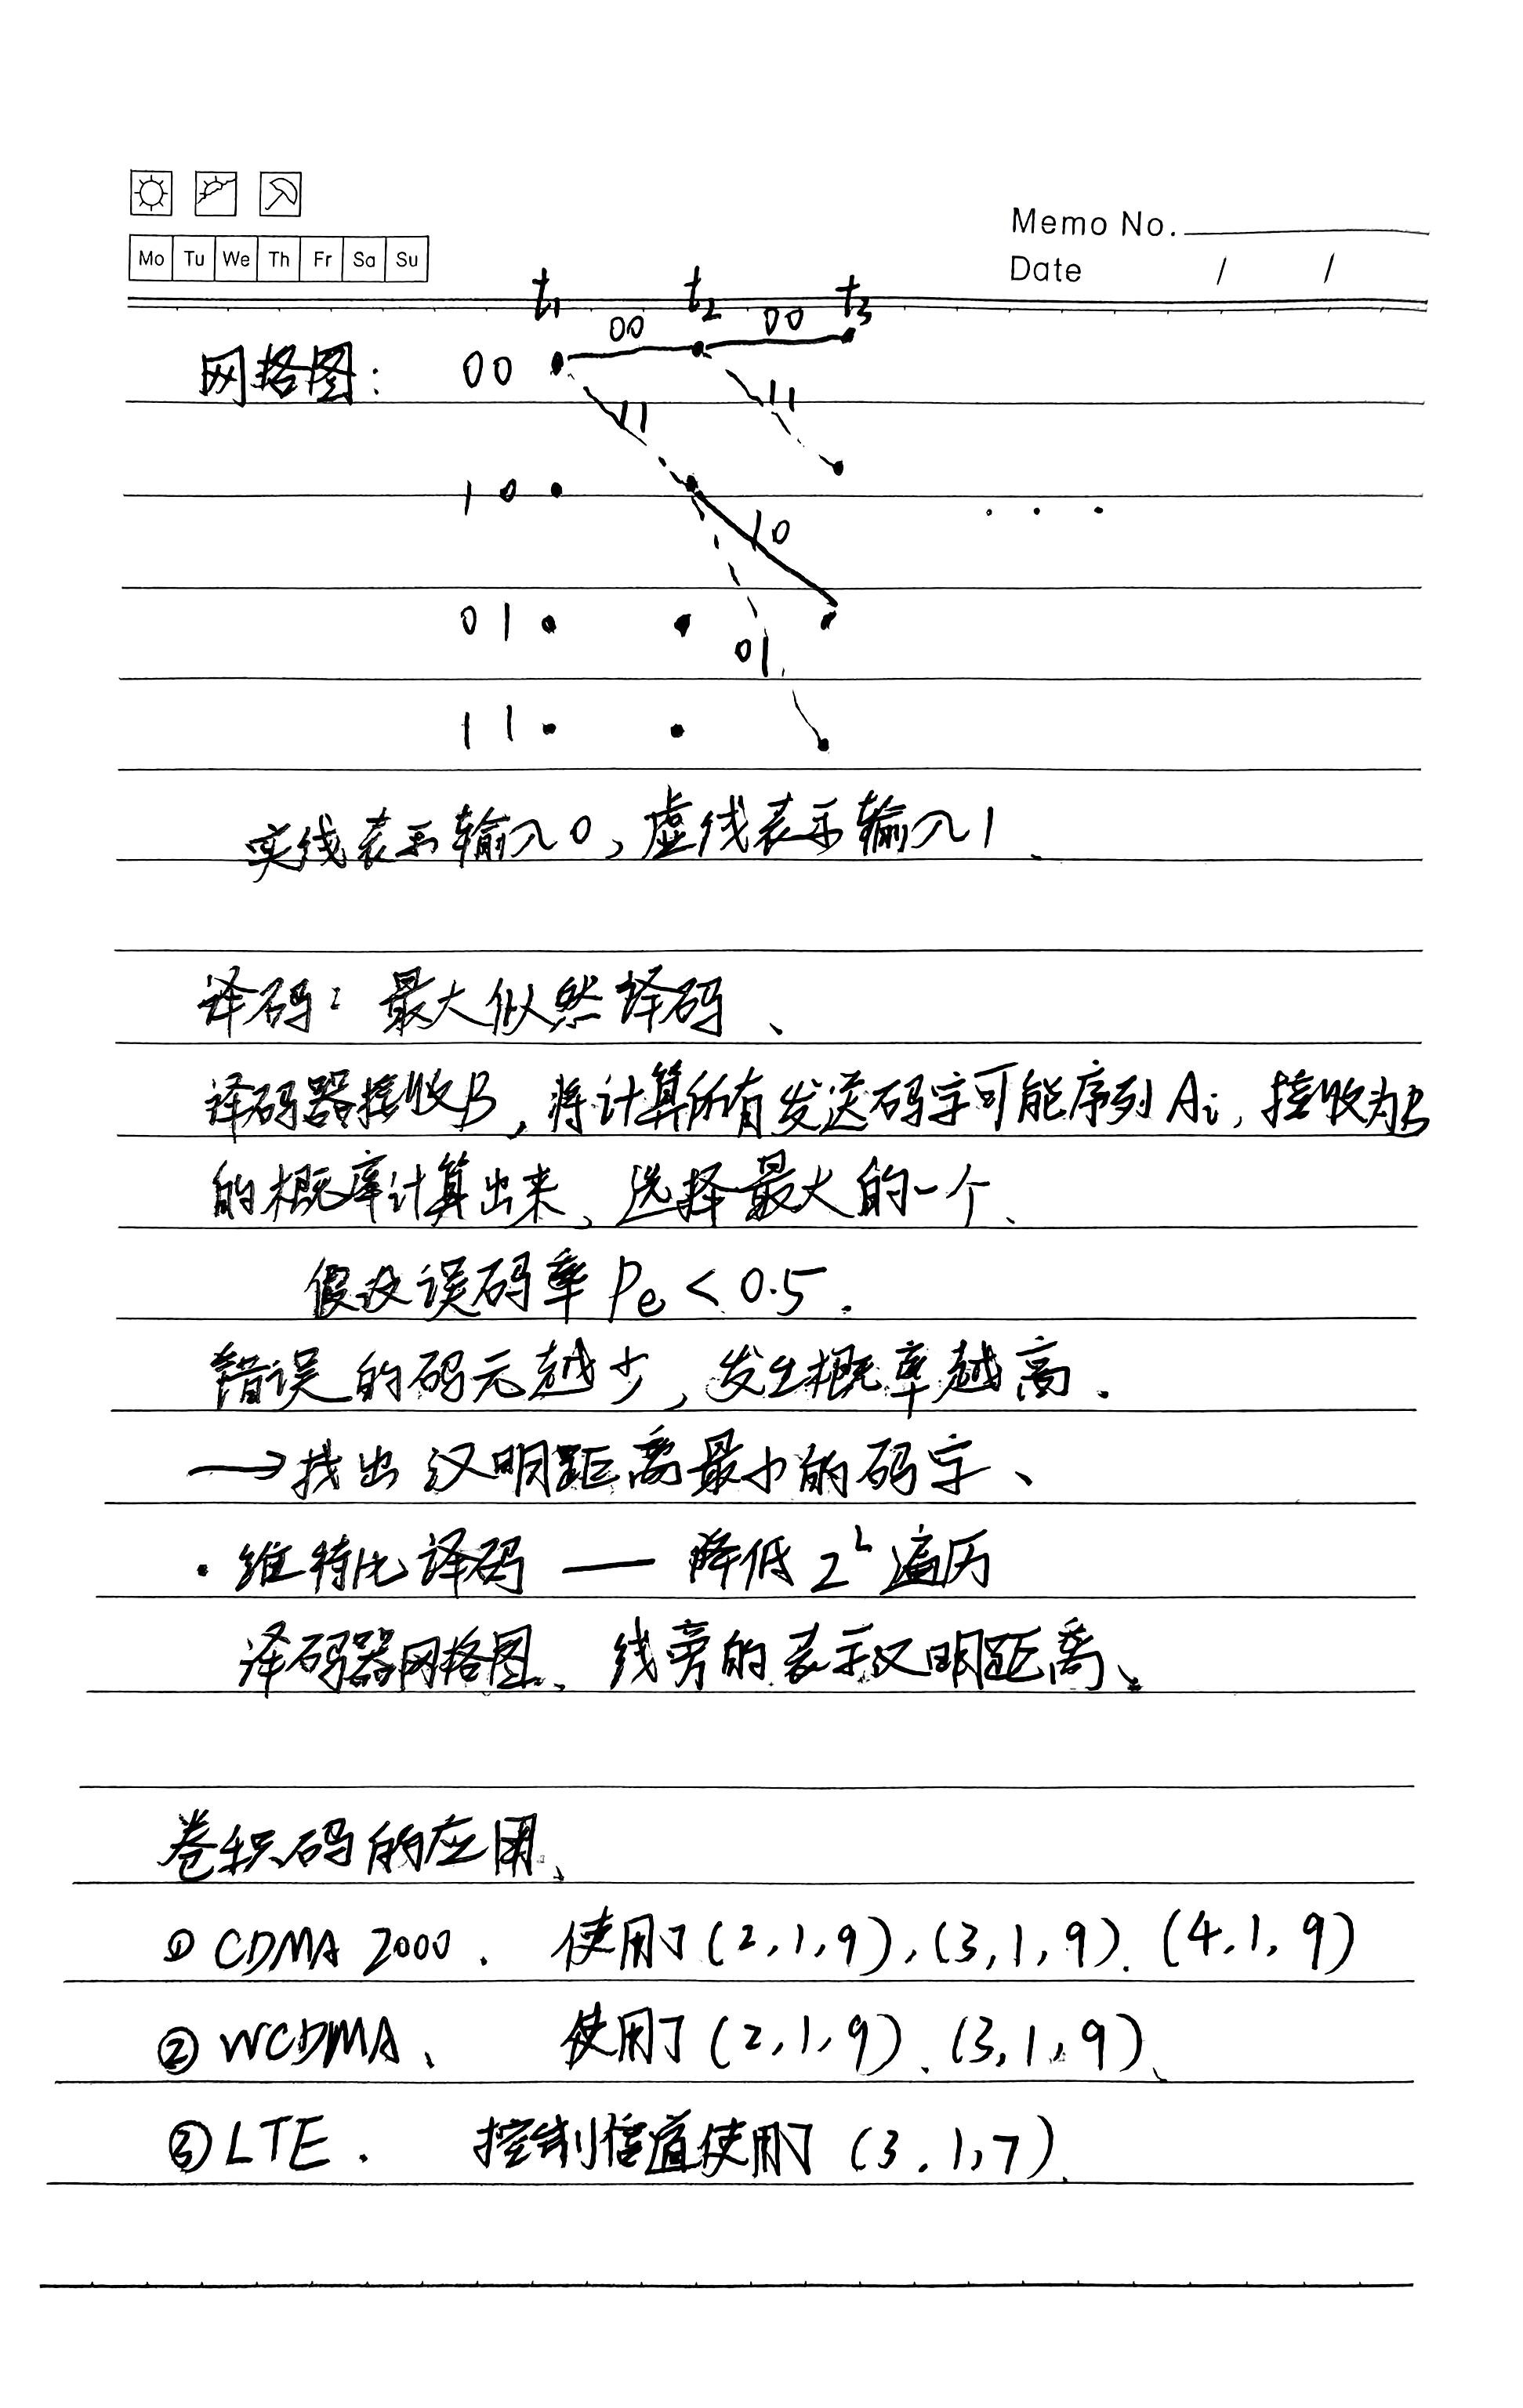 Memo No.
Mo Tu We Th Fr Sa Su
Date / /
t₁ t₂ t₃
00 00
网格图: 00
11 11
10 ...
10
01
01
11
实线表示输入0,虚线表示输入1、
译码:最大似然译码、
译码器接收B,将计算所有发送码字可能序列Ai,接收为B
的概率计算出来、选择最大的一个、
假设误码率Pe<0.5.
错误的码元越少,发生概率越高.
→找出汉明距离最小的码字、
·维特比译码 — 降低2^L遍历
译码器网格图、线旁的表示汉明距离、
卷积码的应用、
①CDMA 2000. 使用了(2,1,9),(3,1,9).(4,1,9)
②WCDMA、 使用了(2,1,9).(3,1,9)、
③LTE. 控制信道使用了(3.1,7).